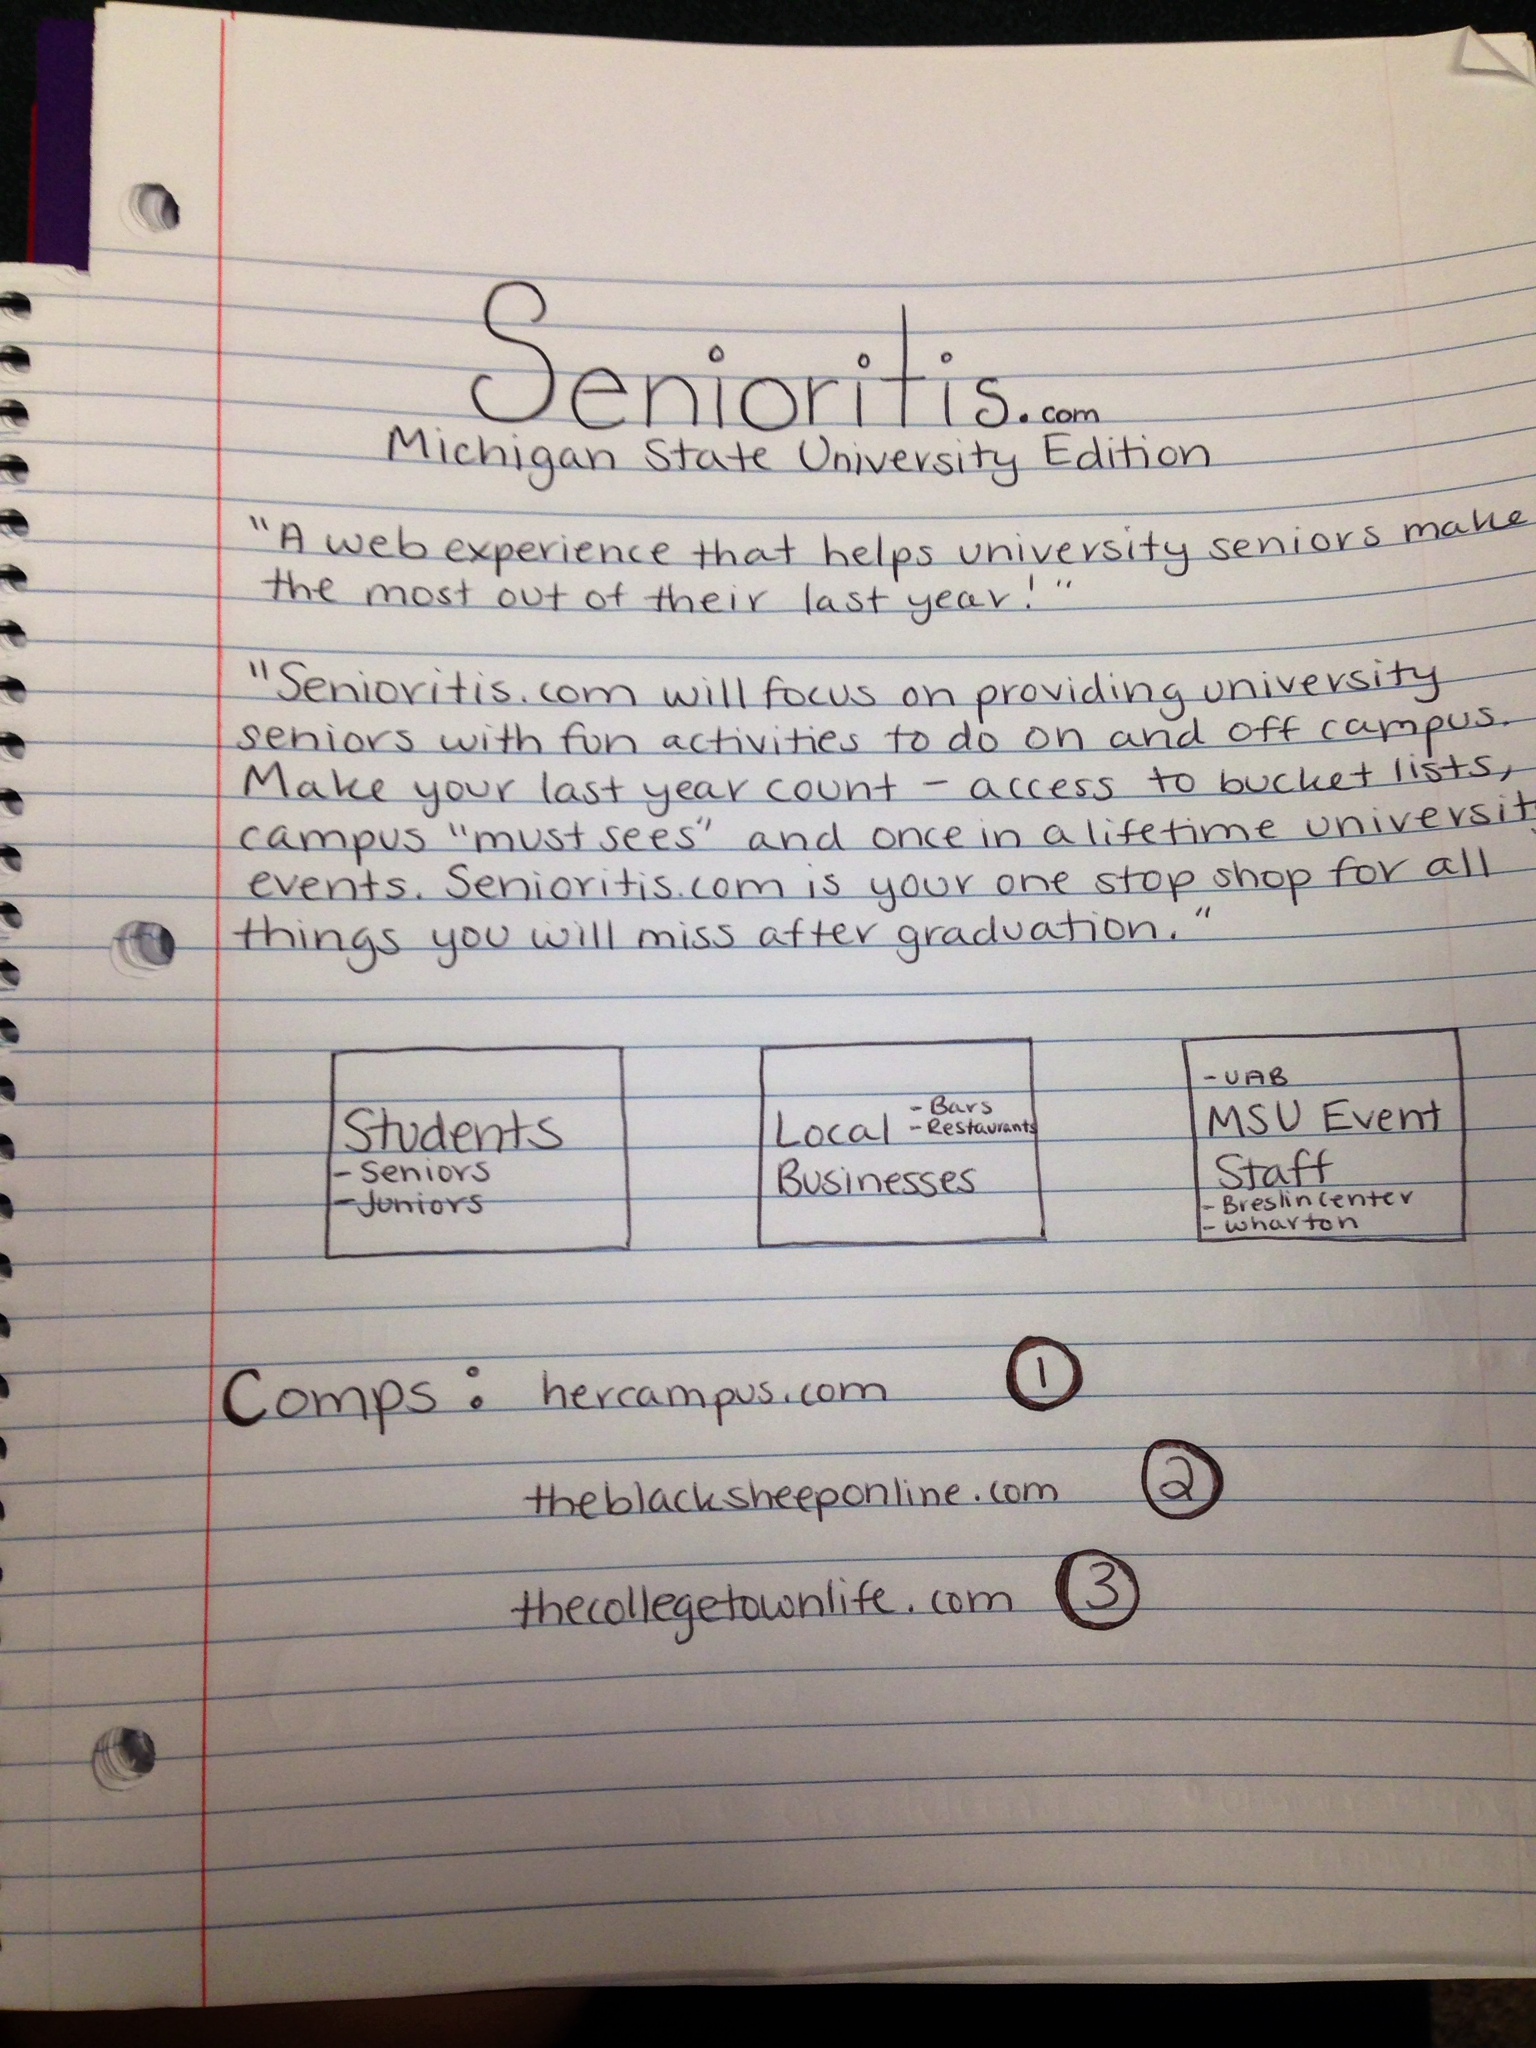 Senioritis.com
Michigan State University Edition
"A web experience that helps university seniors make
the most out of their last year!"
"Senioritis.com will focus on providing university
seniors with fun activities to do on and off campus.
Make your last year count - access to bucket lists,
campus "must sees" and once in a lifetime university
events. Senioritis.com is your one stop shop for all
things you will miss after graduation."
Students
- Seniors
- Juniors
Local - Bars
- Restaurants
Businesses
- UAB
MSU Event
Staff
- Breslin center
- Wharton
Comps: hercampus.com 1
theblacksheeponline.com 2
thecollegetownlife.com 3